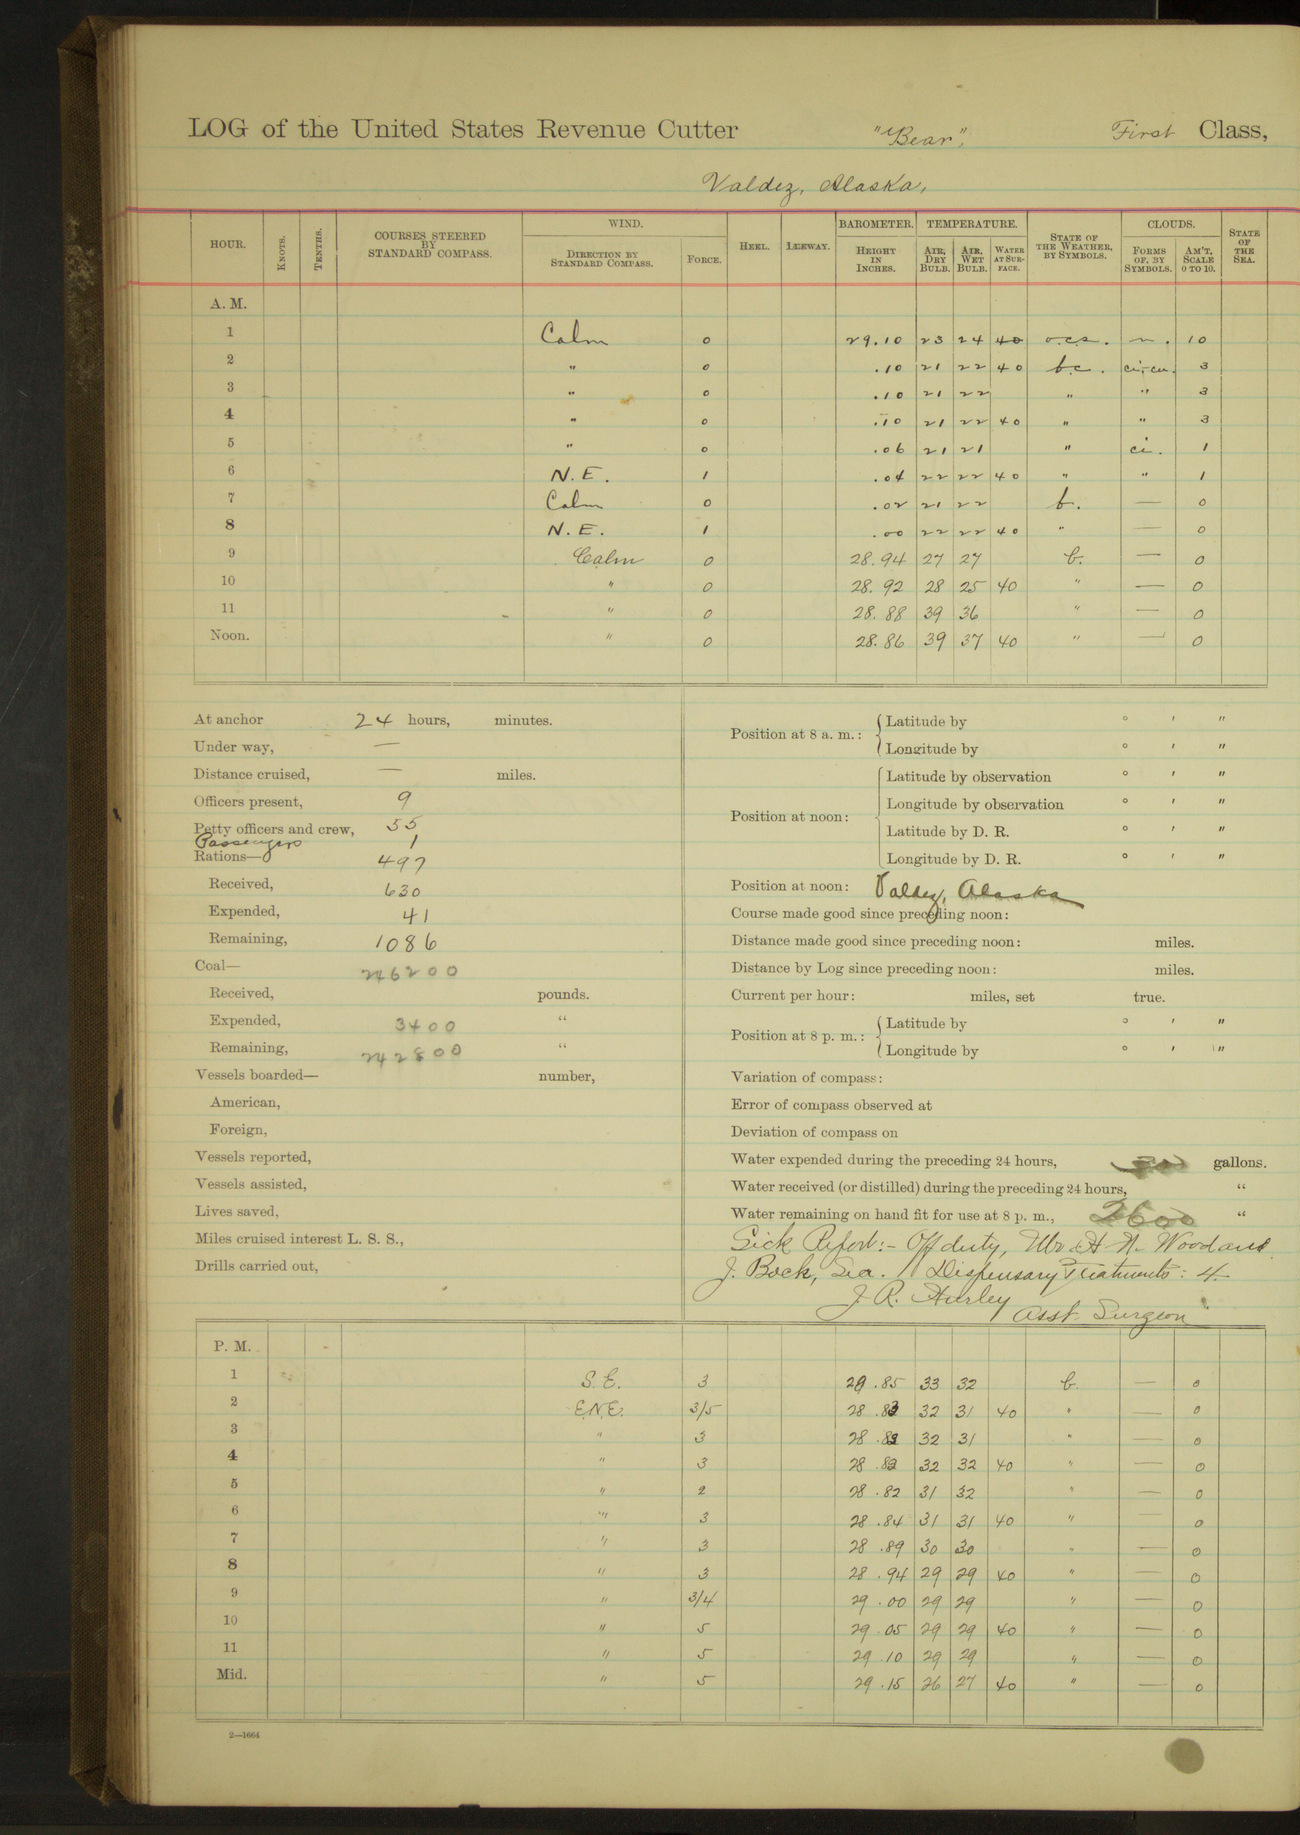 LOG of the United States Revenue Cutter "Bear", First Class,
Valdez, Alaska,
HOUR. KNOTS. TENTHS. COURSES STEERED BY STANDARD COMPASS. WIND. DIRECTION BY STANDARD COMPASS. FORCE. HEEL. LEEWAY. BAROMETER. HEIGHT IN INCHES. TEMPERATURE. AIR, DRY BULB. AIR, WET BULB. WATER AT SURFACE. STATE OF THE WEATHER, BY SYMBOLS. CLOUDS. FORMS OF, BY SYMBOLS. AM'T, SCALE 0 TO 10. STATE OF THE SEA.
A. M.
1 Calm 0 29.10 23 24 40 o.c.s. n. 10
2 " 0 .10 21 22 40 b.c. ci-cu. 3
3 " 0 .10 21 22 " " 3
4 " 0 .10 21 22 40 " " 3
5 " 0 .06 21 21 " ci. 1
6 N.E. 1 .04 22 22 40 " " 1
7 Calm 0 .02 21 22 b. — 0
8 N.E. 1 .00 22 22 40 " — 0
9 Calm 0 28.94 27 27 b. — 0
10 " 0 28.92 28 25 40 " — 0
11 " 0 28.88 39 36 " — 0
Noon. " 0 28.86 39 37 40 " — 0
At anchor 24 hours, minutes.
Under way, —
Distance cruised, — miles.
Officers present, 9
Petty officers and crew, 55
Passengers 1
Rations— 497
Received, 630
Expended, 41
Remaining, 1086
Coal— 246200
Received, pounds.
Expended, 3400 "
Remaining, 242800 "
Vessels boarded— number,
American,
Foreign,
Vessels reported,
Vessels assisted,
Lives saved,
Miles cruised interest L. S. S.,
Drills carried out,
Position at 8 a. m.: Latitude by ° ' "
Longitude by ° ' "
Position at noon: Latitude by observation ° ' "
Longitude by observation ° ' "
Latitude by D. R. ° ' "
Longitude by D. R. ° ' "
Position at noon: Valdez, Alaska
Course made good since preceding noon:
Distance made good since preceding noon: miles.
Distance by Log since preceding noon: miles.
Current per hour: miles, set true.
Position at 8 p. m.: Latitude by ° ' "
Longitude by ° ' "
Variation of compass:
Error of compass observed at
Deviation of compass on
Water expended during the preceding 24 hours, gallons.
Water received (or distilled) during the preceding 24 hours, "
Water remaining on hand fit for use at 8 p. m., 2600 "
Sick Report:- Off duty, Mr. H. N. Wood and
J. Bock, Sea. Dispensary Treatments: 4
J. R. Hurley Asst. Surgeon
P. M.
1 S.E. 3 28.85 33 32 b. — 0
2 E.N.E. 3/5 28.83 32 31 40 " — 0
3 " 3 28.83 32 31 " — 0
4 " 3 28.82 32 32 40 " — 0
5 " 2 28.82 31 32 " — 0
6 " 3 28.84 31 31 40 " — 0
7 " 3 28.89 30 30 " — 0
8 " 3 28.94 29 29 40 " — 0
9 " 3/4 29.00 29 29 " — 0
10 " 5 29.05 29 29 40 " — 0
11 " 5 29.10 29 29 " — 0
Mid. " 5 29.15 26 27 40 " — 0
2—1664